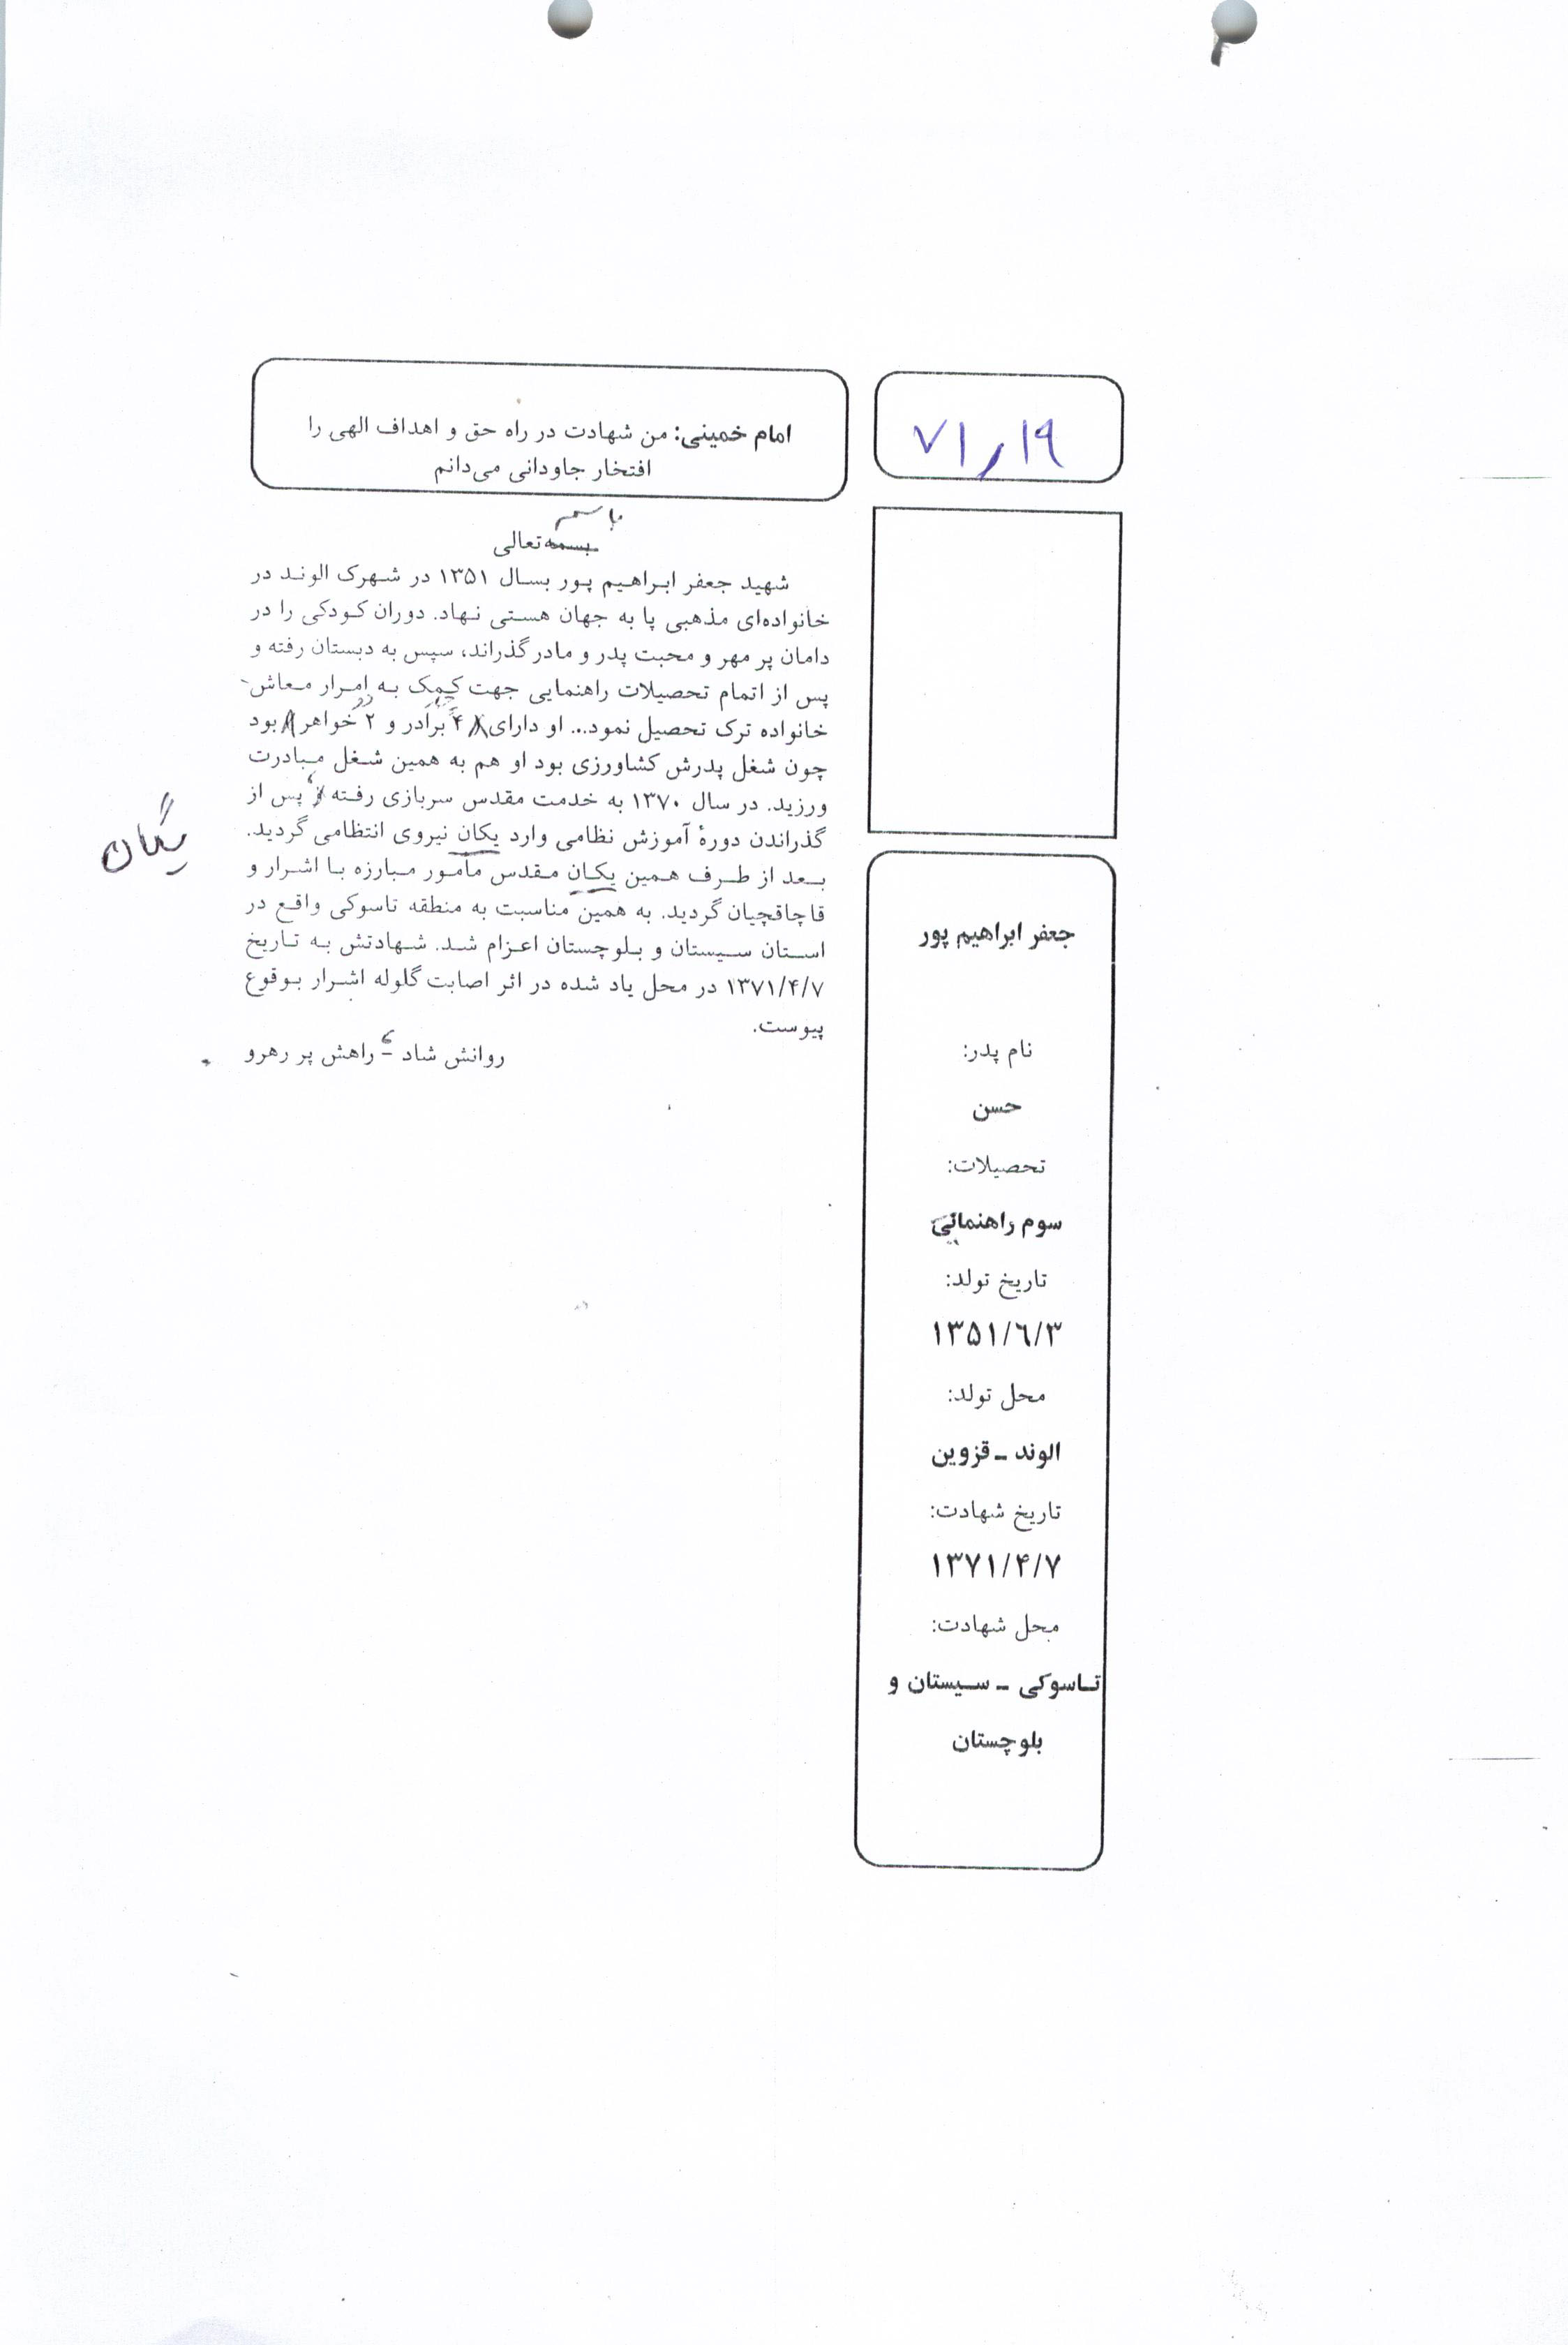 ۷۱٫۱۹
امام خمینی: من شهادت در راه حق و اهداف الهی را
افتخار جاودانی می‌دانم
باسمه
بسمه تعالی
شهید جعفر ابراهیم پور بسال ۱۳۵۱ در شهرک الوند در
خانواده‌ای مذهبی پا به جهان هستی نهاد. دوران کودکی را در
دامان پر مهر و محبت پدر و مادر گذراند، سپس به دبستان رفته و
پس از اتمام تحصیلات راهنمایی جهت کمک به امرار معاش
خانواده ترک تحصیل نمود... او دارای ۴ برادر و ۲ خواهر بود
چون شغل پدرش کشاورزی بود او هم به همین شغل مبادرت
ورزید. در سال ۱۳۷۰ به خدمت مقدس سربازی رفته پس از
گذراندن دورهٔ آموزش نظامی وارد یکان نیروی انتظامی گردید.
یگان
بعد از طرف همین یکان مقدس مأمور مبارزه با اشرار و
قاچاقچیان گردید. به همین مناسبت به منطقه تاسوکی واقع در
استان سیستان و بلوچستان اعزام شد. شهادتش به تاریخ
۱۳۷۱/۴/۷ در محل یاد شده در اثر اصابت گلوله اشرار بوقوع
پیوست.
روانش شاد - راهش پر رهرو
جعفر ابراهیم پور
نام پدر:
حسن
تحصیلات:
سوم راهنمائی
تاریخ تولد:
۱۳۵۱/۶/۳
محل تولد:
الوند ـ قزوین
تاریخ شهادت:
۱۳۷۱/۴/۷
محل شهادت:
تاسوکی ـ سیستان و
بلوچستان